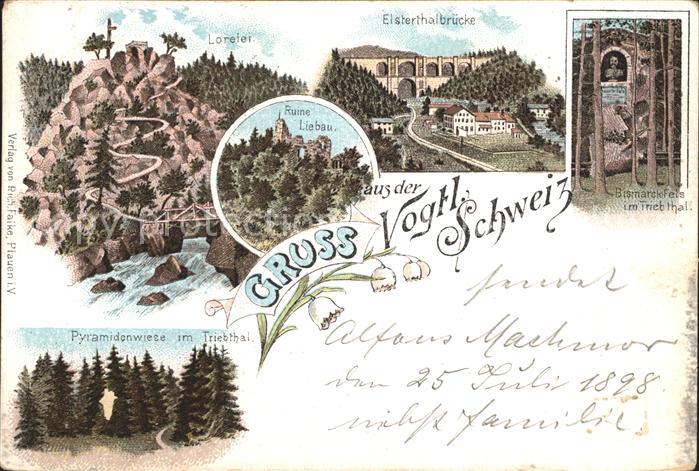 Lorelei.
Elsterthalbrücke
Ruine
Liebau.
Bismarckfels
im Triebthal.
GRUSS
aus der
Vogtl. Schweiz
Pyramidenwiese im Triebthal.
Verlag von Rich. Falke, Plauen i.V
sendet
Alfons
den 25 Juli 1898.
nebst Familie.